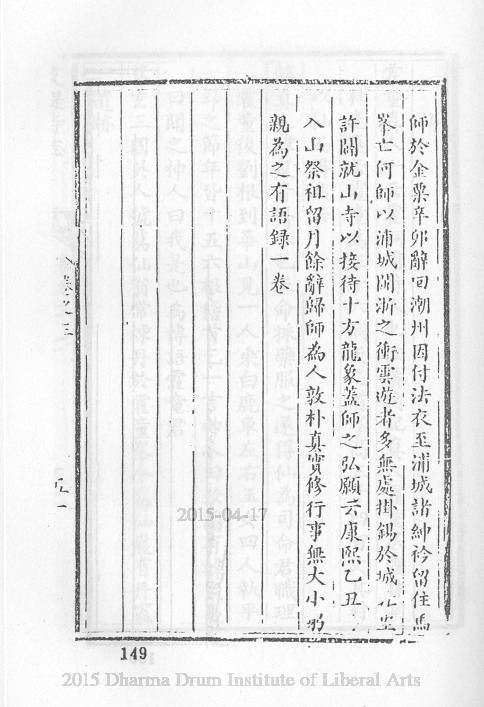 師於金粟辛卯辭回潮州因付法衣至浦城諸紳衿留住馬
峯亡何師以浦城閩浙之衝雲遊者多無處掛錫於城
許開就山寺以接待十方龍象蓋師之弘願云康熙乙丑
入山祭祖留月餘辭歸師為人敦朴真實修行事無大小
親為之有語録一卷
卷之三
149
2015-04-17
2015 Dharma Drum Institute of Liberal Arts